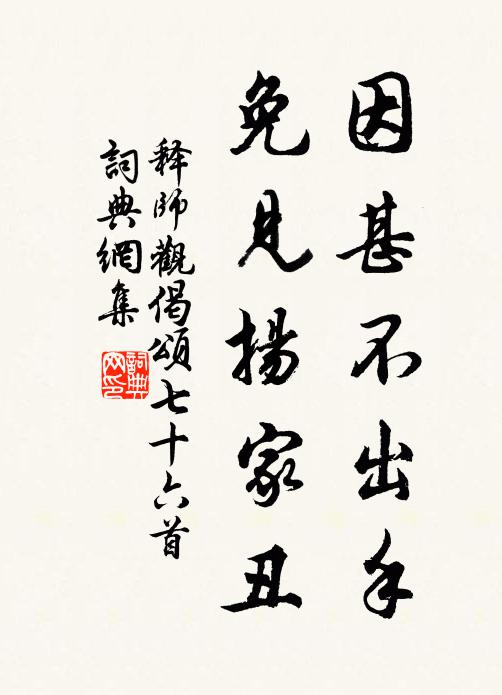 因甚不出手
免见揚家丑
释師觀偈頌七十六首
詞典網集
詞典网印